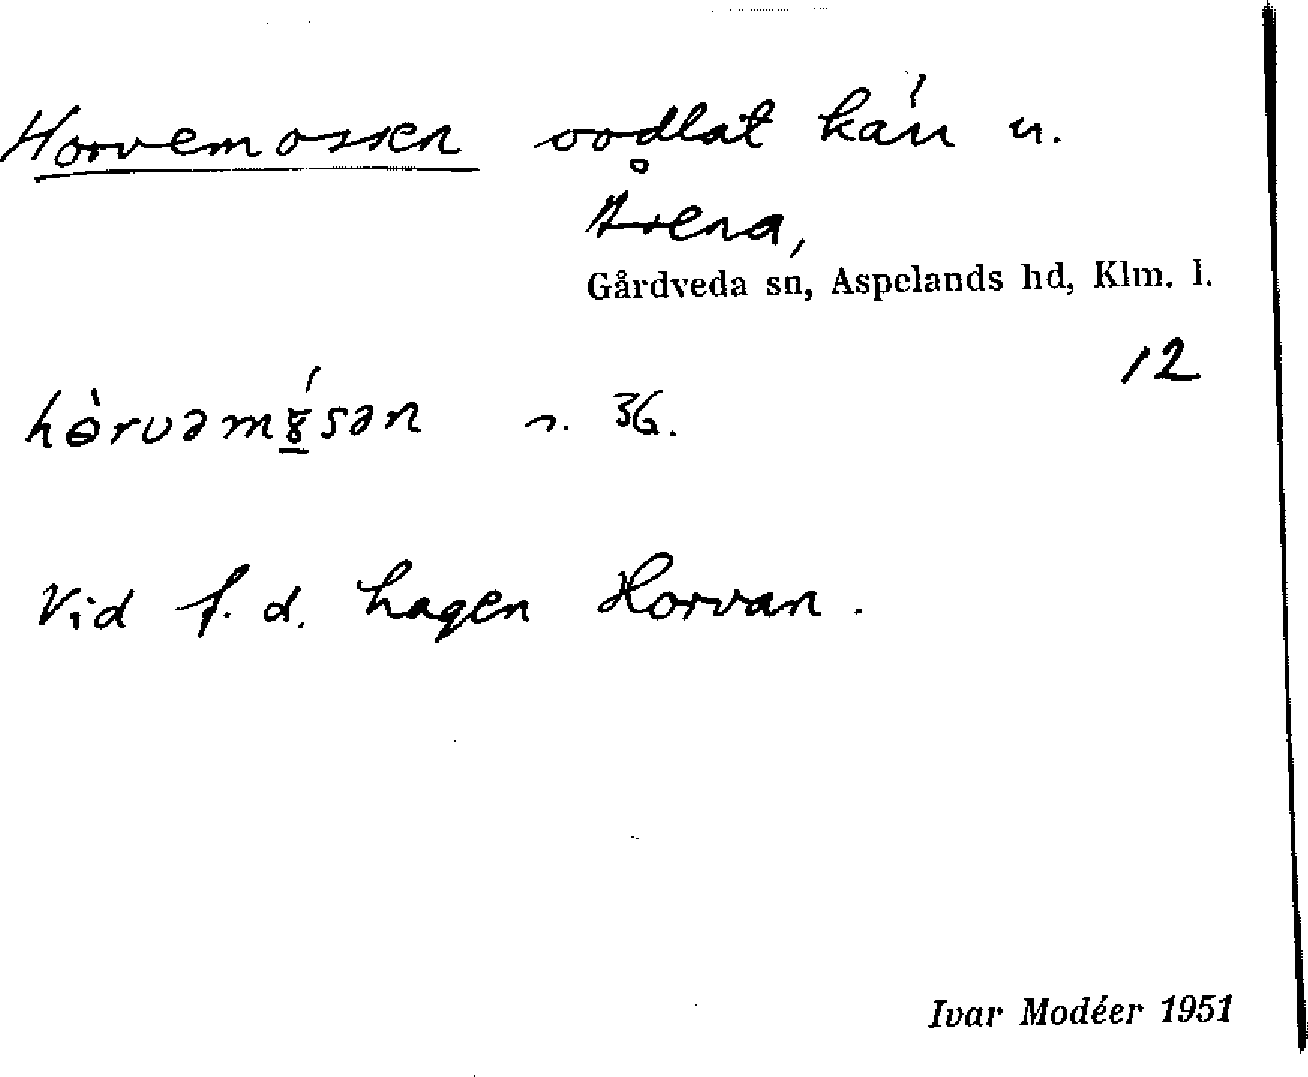 Horvemossen oodlat kärr u.
Åsena,
Gårdveda sn, Aspelands hd, Klm. l.
12
36.
Vid f. d. hagen Horvan.
Ivar Modéer 1951